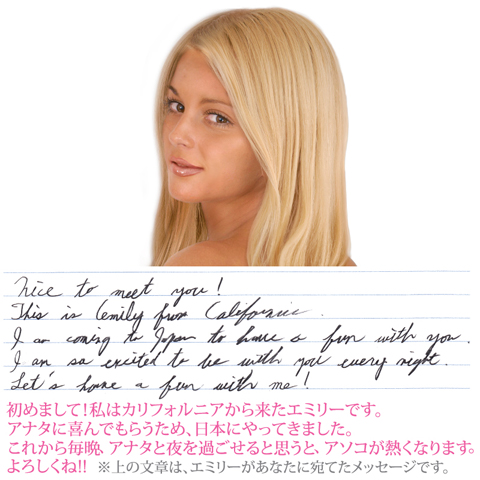 Nice to meet you!
This is Emily from California.
I am coming to Japan to have a fun with you.
I am so excited to be with you every night.
Let's have a fun with me!
初めまして!私はカリフォルニアから来たエミリーです。
アナタに喜んでもらうため、日本にやってきました。
これから毎晩、アナタと夜を過ごせると思うと、アソコが熱くなります。
よろしくね!! ※上の文章は、エミリーがあなたに宛てたメッセージです。